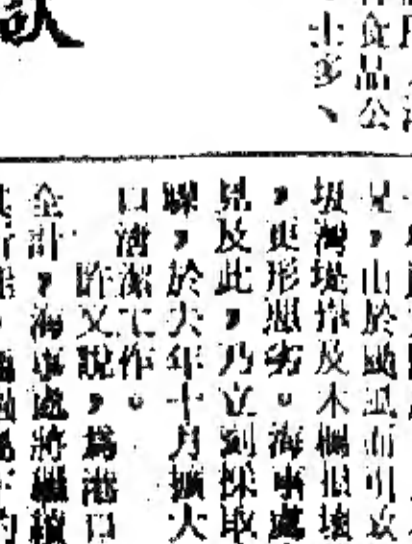 食品公
士多、
見，由於颱風而引致
灣堤岸及木欄損壞
，更形惡劣。海事處
見及此，乃立刻採取
驟，於去年十月擴大
口清潔工作。
昨又說，為港口
全計，海事處將繼續